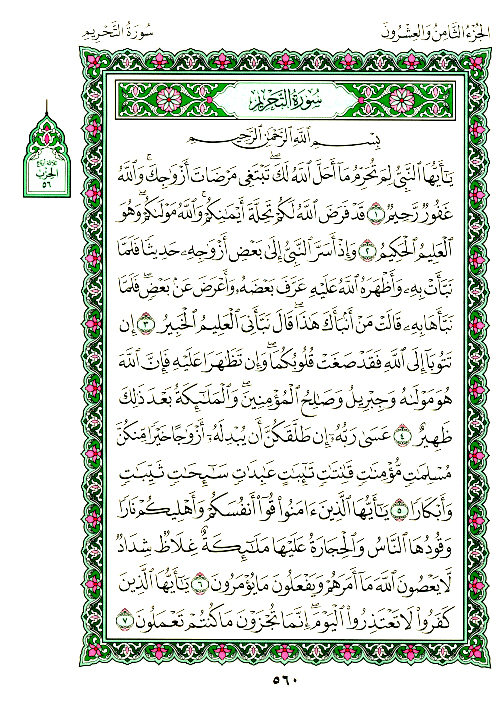 سُورَةُ التَّحْرِيمِ
الجُزْءُ الثَّامِنُ وَالعِشْرُونَ
سُورَةُ التَّحْرِيمِ
بِسْمِ ٱللَّهِ ٱلرَّحْمَٰنِ ٱلرَّحِيمِ
يَٰٓأَيُّهَا ٱلنَّبِىُّ لِمَ تُحَرِّمُ مَآ أَحَلَّ ٱللَّهُ لَكَ ۖ تَبْتَغِى مَرْضَاتَ أَزْوَٰجِكَ ۚ وَٱللَّهُ
غَفُورٌ رَّحِيمٌ ١ قَدْ فَرَضَ ٱللَّهُ لَكُمْ تَحِلَّةَ أَيْمَٰنِكُمْ ۚ وَٱللَّهُ مَوْلَىٰكُمْ ۖ وَهُوَ
ٱلْعَلِيمُ ٱلْحَكِيمُ ٢ وَإِذْ أَسَرَّ ٱلنَّبِىُّ إِلَىٰ بَعْضِ أَزْوَٰجِهِۦ حَدِيثًا فَلَمَّا
نَبَّأَتْ بِهِۦ وَأَظْهَرَهُ ٱللَّهُ عَلَيْهِ عَرَّفَ بَعْضَهُۥ وَأَعْرَضَ عَنۢ بَعْضٍ ۖ فَلَمَّا
نَبَّأَهَا بِهِۦ قَالَتْ مَنْ أَنۢبَأَكَ هَٰذَا ۖ قَالَ نَبَّأَنِىَ ٱلْعَلِيمُ ٱلْخَبِيرُ ٣ إِن
تَتُوبَآ إِلَى ٱللَّهِ فَقَدْ صَغَتْ قُلُوبُكُمَا ۖ وَإِن تَظَٰهَرَا عَلَيْهِ فَإِنَّ ٱللَّهَ
هُوَ مَوْلَىٰهُ وَجِبْرِيلُ وَصَٰلِحُ ٱلْمُؤْمِنِينَ ۖ وَٱلْمَلَٰٓئِكَةُ بَعْدَ ذَٰلِكَ
ظَهِيرٌ ٤ عَسَىٰ رَبُّهُۥٓ إِن طَلَّقَكُنَّ أَن يُبْدِلَهُۥٓ أَزْوَٰجًا خَيْرًا مِّنكُنَّ
مُسْلِمَٰتٍ مُّؤْمِنَٰتٍ قَٰنِتَٰتٍ تَٰٓئِبَٰتٍ عَٰبِدَٰتٍ سَٰٓئِحَٰتٍ ثَيِّبَٰتٍ
وَأَبْكَارًا ٥ يَٰٓأَيُّهَا ٱلَّذِينَ ءَامَنُوا۟ قُوٓا۟ أَنفُسَكُمْ وَأَهْلِيكُمْ نَارًا
وَقُودُهَا ٱلنَّاسُ وَٱلْحِجَارَةُ عَلَيْهَا مَلَٰٓئِكَةٌ غِلَاظٌ شِدَادٌ
لَّا يَعْصُونَ ٱللَّهَ مَآ أَمَرَهُمْ وَيَفْعَلُونَ مَا يُؤْمَرُونَ ٦ يَٰٓأَيُّهَا ٱلَّذِينَ
كَفَرُوا۟ لَا تَعْتَذِرُوا۟ ٱلْيَوْمَ ۖ إِنَّمَا تُجْزَوْنَ مَا كُنتُمْ تَعْمَلُونَ ٧
الحزب
٥٦
٥٦٠